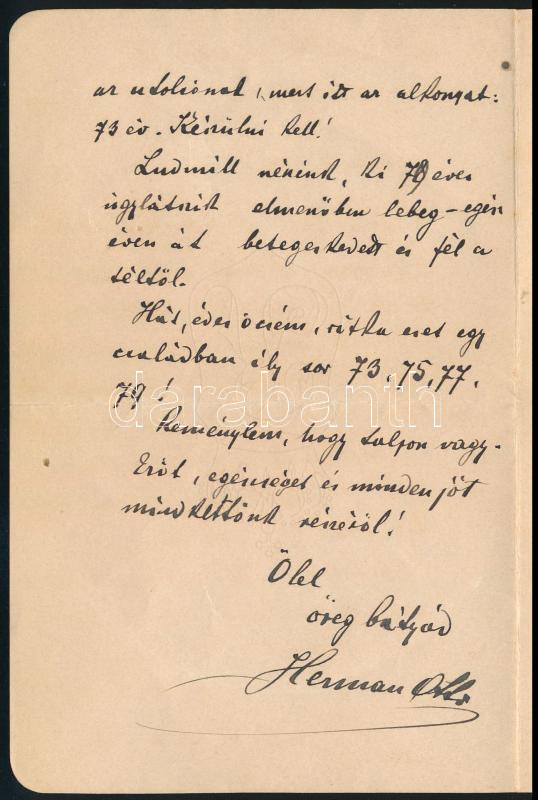 az utolsónak, mert itt az alkonyat:
73 év. Készülni kell!
Ludmill nénénk, ki 79 éves
úgylátszik elmenőben lebeg – egész
éven át betegeskedett és fél a
téltől.
Hát, édes öcsém, ritka eset egy
családban ily sor 73, 75, 77,
79!
Reménylem, hogy talpon vagy.
Erőt, egészséget és minden jót
mindkettőnk részéről!
Ölel
öreg bátyád
Herman Ottó
darabanth